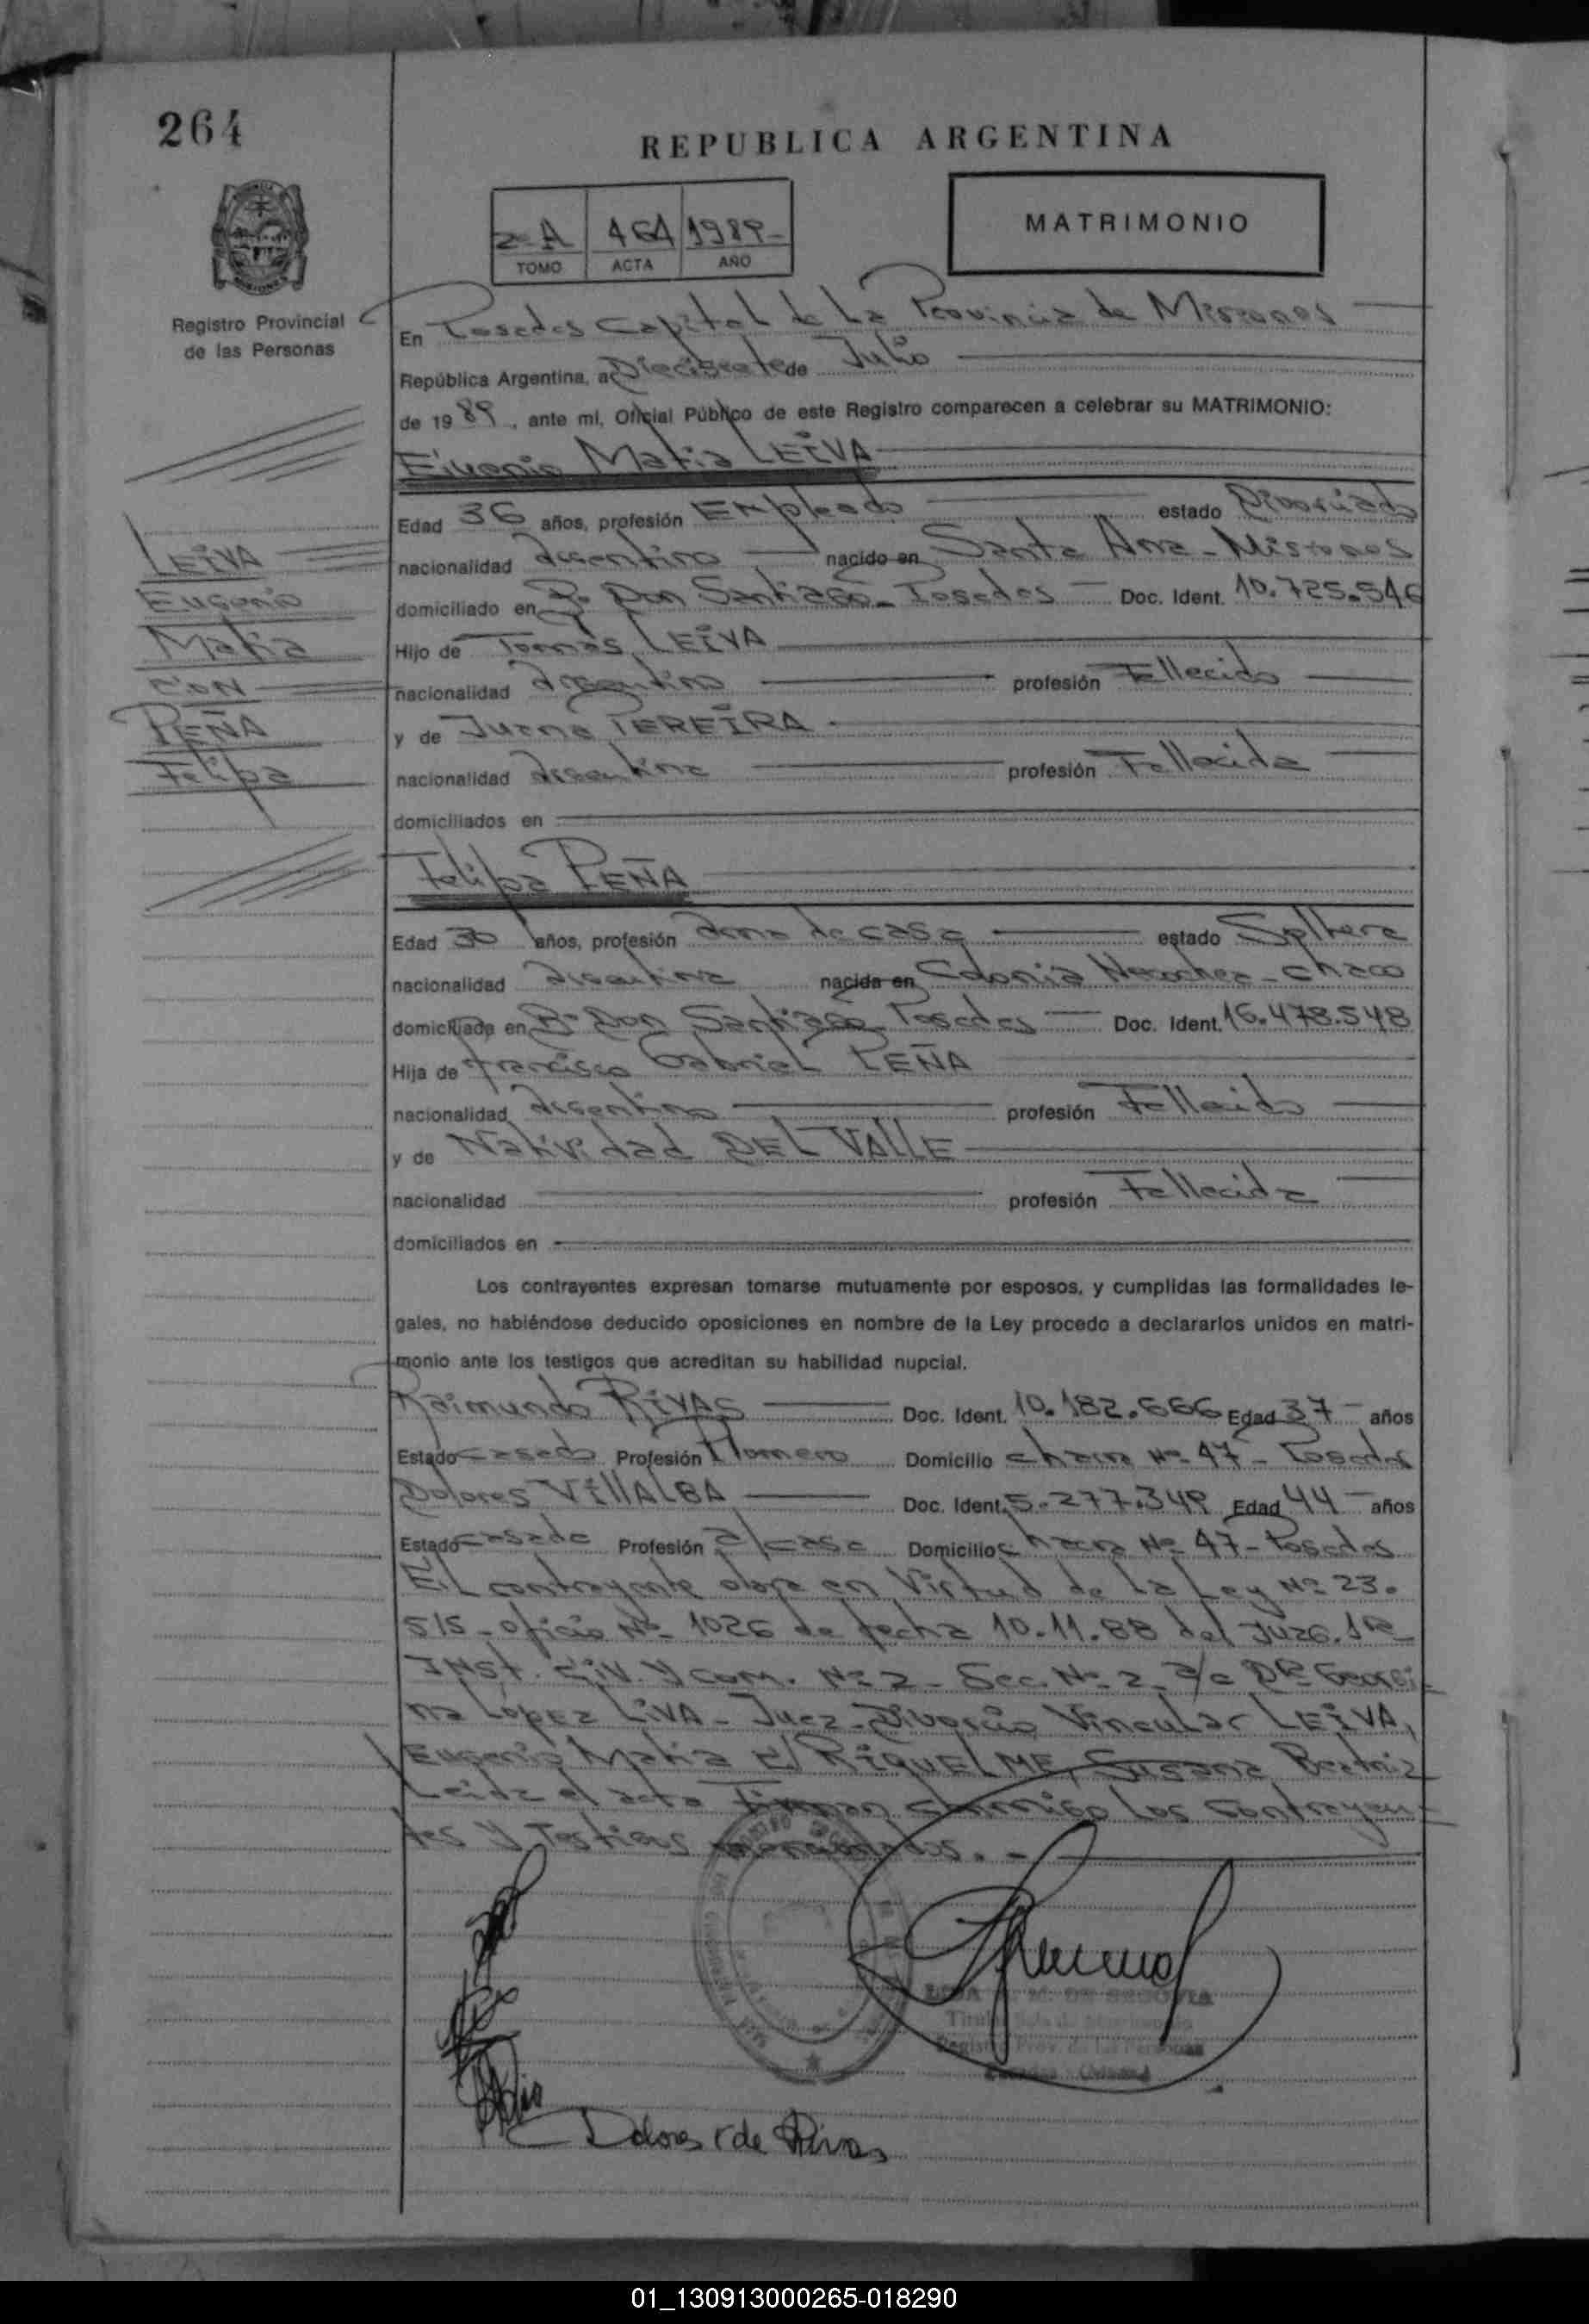 264
REPUBLICA ARGENTINA
2º A 464 1989
TOMO ACTA AÑO
MATRIMONIO
Registro Provincial
de las Personas
En Posadas Capital de La Provincia de Misiones
República Argentina, a Diecisiete de Julio
de 1989, ante mi, Oficial Público de este Registro comparecen a celebrar su MATRIMONIO:
Eugenio Matia LEIVA
Edad 36 años, profesión Empleado estado Divorciado
nacionalidad argentino nacido en Santa Ana - Misiones
domiciliado en Bº Don Santiago - Posadas Doc. Ident. 10.725.546
Hijo de Tomás LEIVA
nacionalidad argentino profesión Fallecido
y de Juana PEREIRA
nacionalidad argentina profesión Fallecida
domiciliados en
LEIVA
Eugenio
Matia
CON
PEÑA
Felipa
Felipa PEÑA
Edad 30 años, profesión ama de casa estado Soltera
nacionalidad argentina nacida en Colonia Necochea - Chaco
domiciliada en Bº Don Santiago Posadas Doc. Ident. 16.478.548
Hija de Francisco Gabriel PEÑA
nacionalidad argentino profesión Fallecido
y de Natividad DEL VALLE
nacionalidad profesión Fallecida
domiciliados en
Los contrayentes expresan tomarse mutuamente por esposos, y cumplidas las formalidades le-
gales, no habiéndose deducido oposiciones en nombre de la Ley procedo a declararlos unidos en matri-
monio ante los testigos que acreditan su habilidad nupcial.
Raimundo RIVAS Doc. Ident. 10.182.666 Edad 37 años
Estado casado Profesión Plomero Domicilio chacra Nº 47 - Posadas
Dolores VillALBA Doc. Ident. 5.277.349 Edad 44 años
Estado casada Profesión a/casa Domicilio chacra Nº 47 - Posadas
El contrayente obra en Virtud de La Ley Nº 23.
515 - oficio Nº 1026 de fecha 10.11.88 del Juzg. 1ra
INST. CIV. Y COM. Nº 2 - Sec. Nº 2 a/c Dra Georgi-
na López LIVA - Juez - Divorcio Vincular LEIVA,
Eugenio Matia c/ RIQUELME, Susana Beatriz
Leida el acta Firman conmigo los contrayen-
tes y Testigos mencionados. -
M. DE SEGOVIA
Registro Prov. de las Personas
Posadas
Dolores V de Rivas
01_130913000265-018290